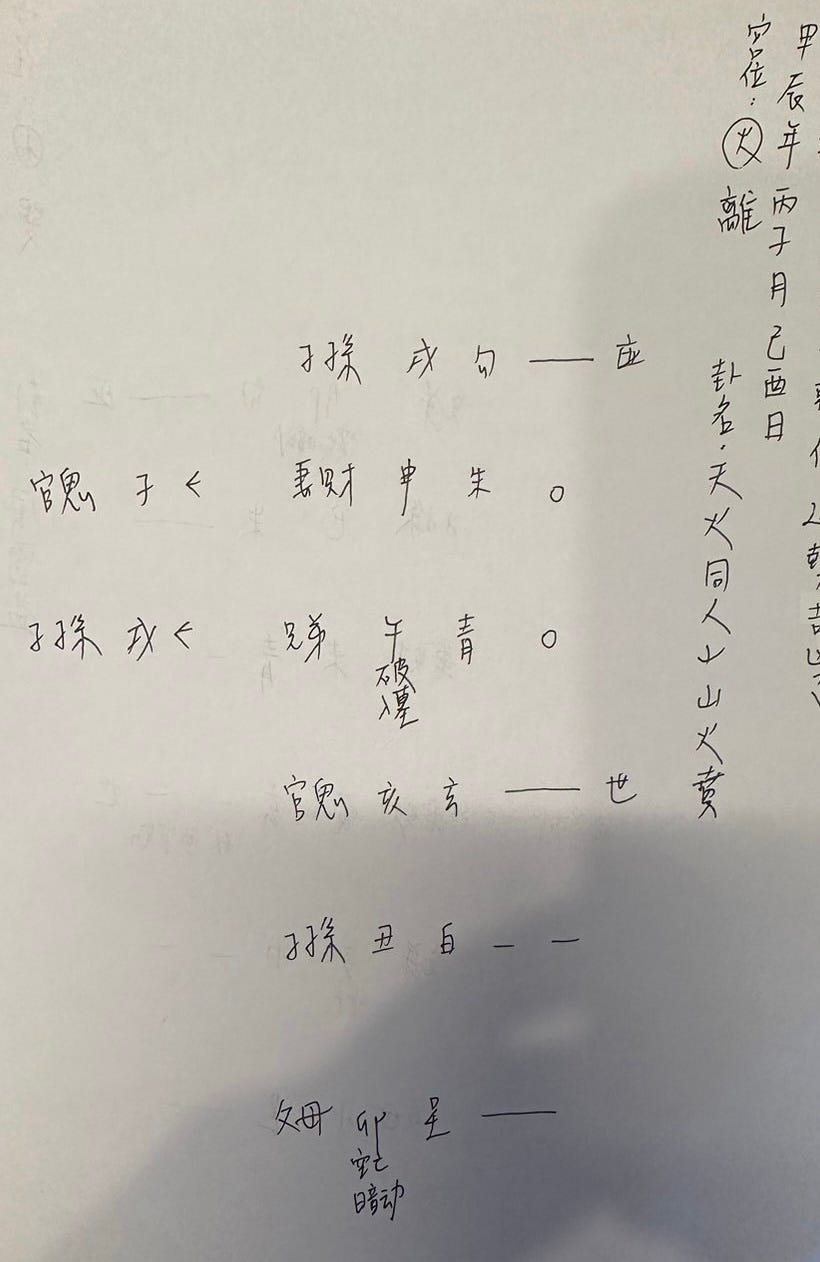 甲辰年丙子月己酉日
宫位：火離
卦名．天火同人之山火賁
子孫 戌 勾 应
官鬼 子 妻財 申 朱
子孫 戌 兄弟 午 青
破
入墓
官鬼 亥 玄 世
子孫 丑 白
父母 卯
空亡
暗动